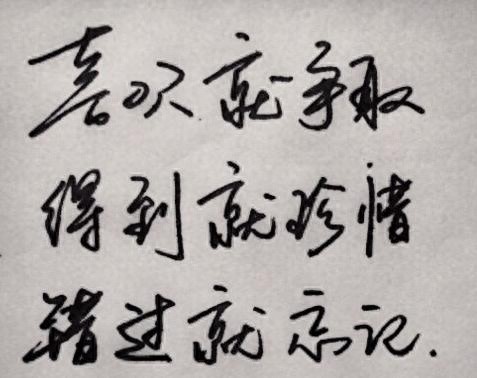 喜欢就争取
得到就珍惜
错过就忘记.